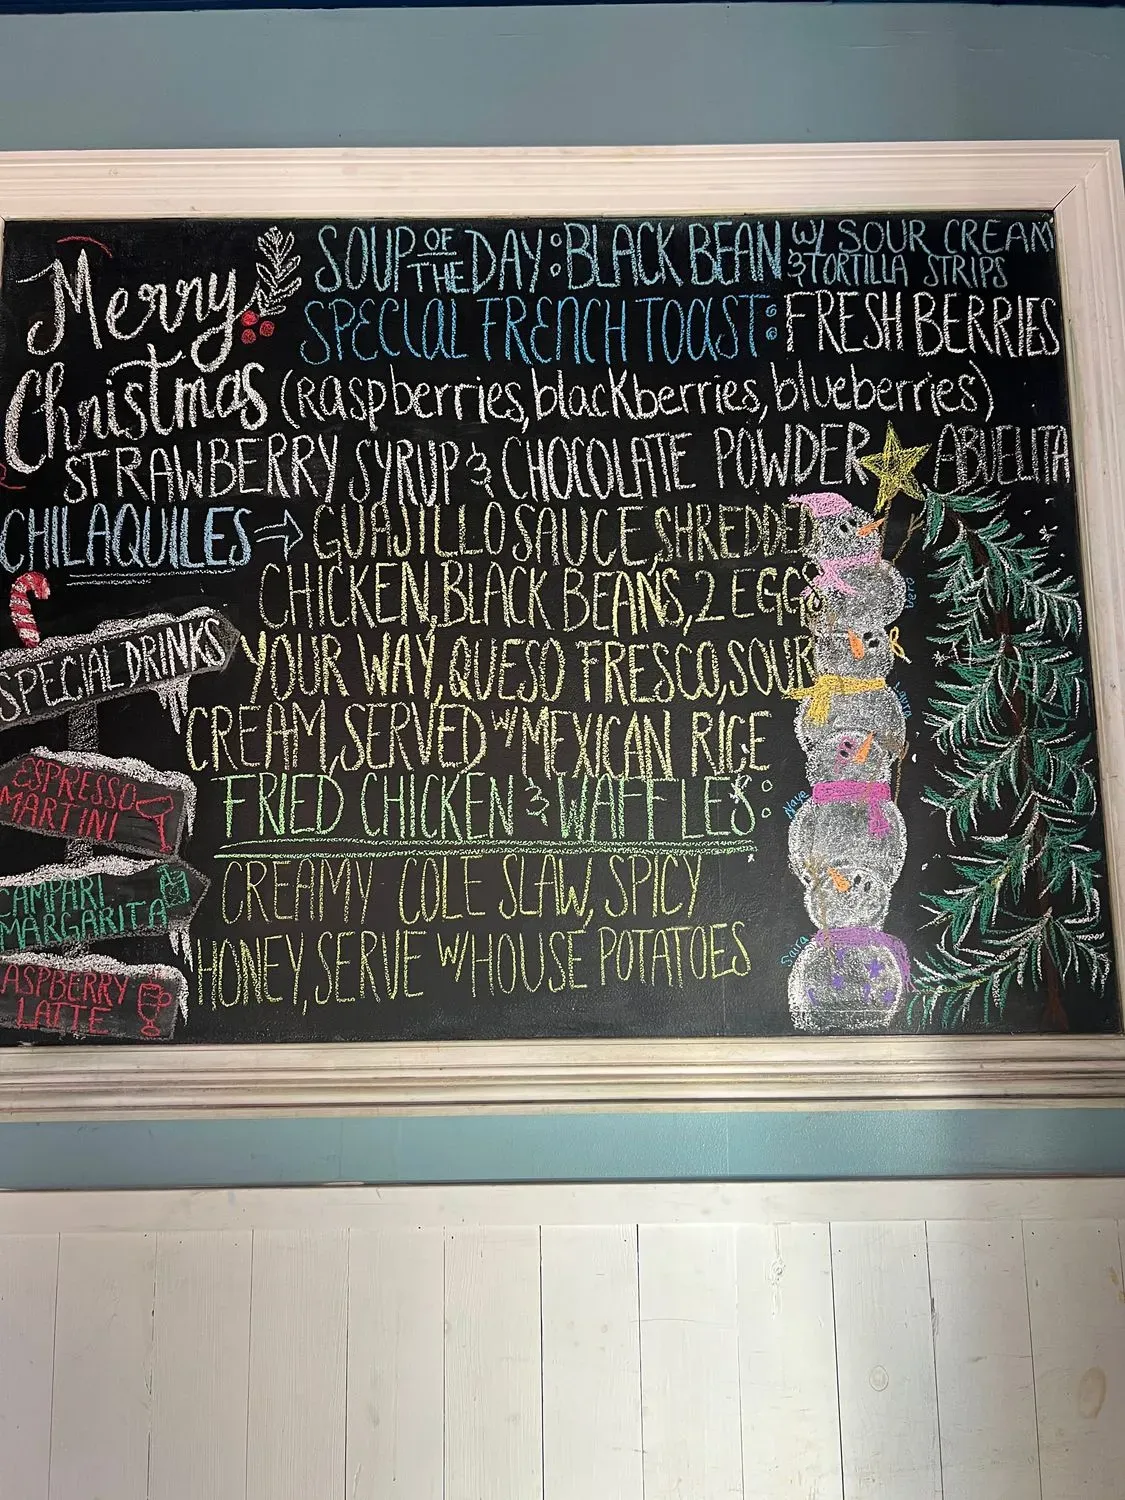 Merry
Christmas
SOUP OF THE DAY: BLACK BEAN W/ SOUR CREAM
& TORTILLA STRIPS
SPECIAL FRENCH TOAST: FRESH BERRIES
(raspberries, blackberries, blueberries)
STRAWBERRY SYRUP & CHOCOLATE POWDER ABUELITA
CHILAQUILES → GUAJILLO SAUCE, SHREDDED
CHICKEN, BLACK BEANS, 2 EGGS
YOUR WAY, QUESO FRESCO, SOUR
CREAM, SERVED W/ MEXICAN RICE
FRIED CHICKEN & WAFFLES:
CREAMY COLE SLAW, SPICY
HONEY, SERVE W/ HOUSE POTATOES
SPECIAL DRINKS
ESPRESSO
MARTINI
CAMPARI
MARGARITA
RASPBERRY
LATTE